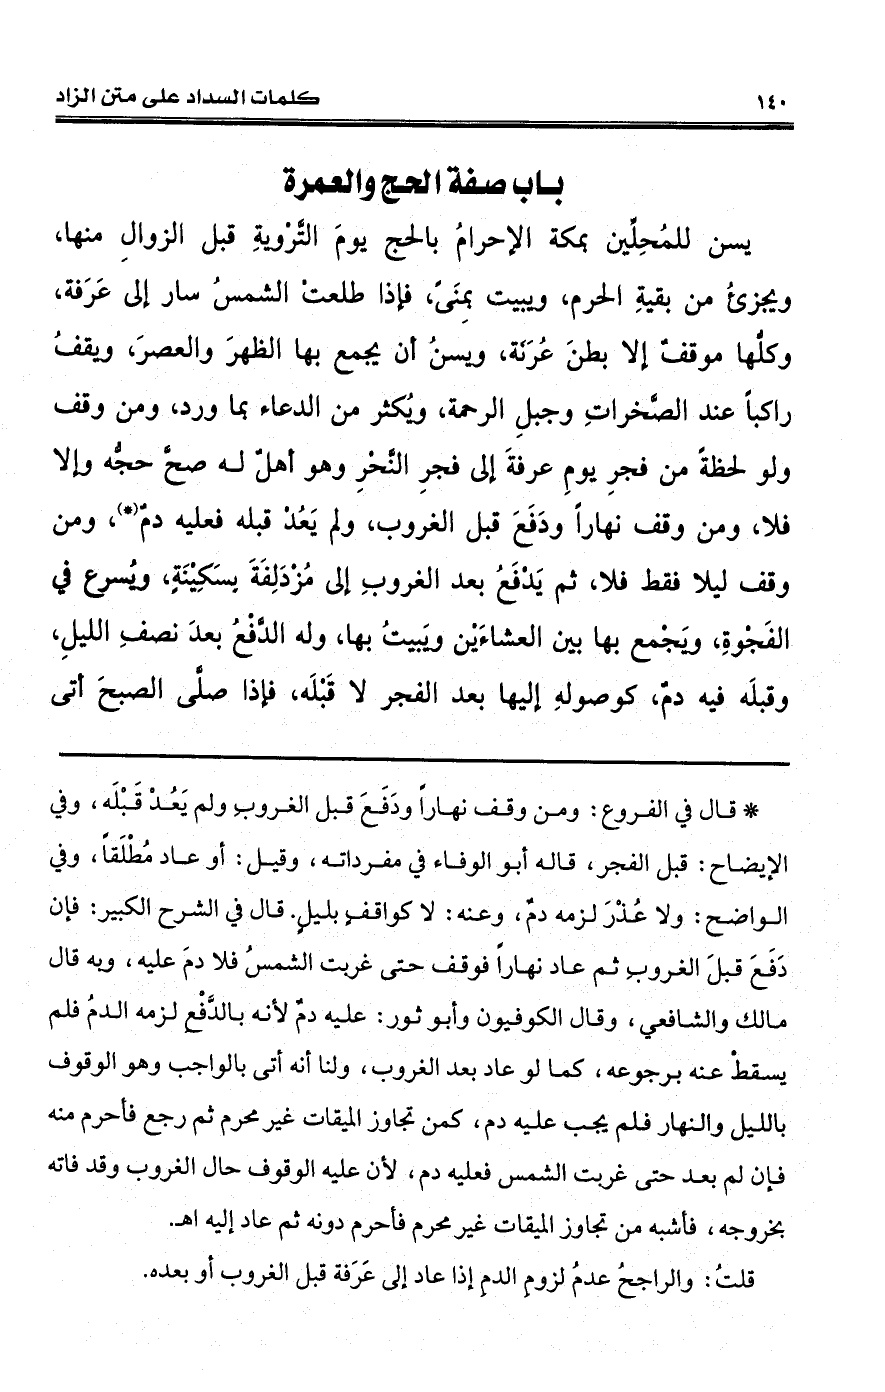 ١٤٠ كلمات السداد على متن الزاد
باب صفة الحج والعمرة
يسن للمُحِلِّين بمكة الإحرامُ بالحج يومَ التَّرْويةِ قبل الزوالِ منها،
ويجزئُ من بقيةِ الحرم، ويبيت بمِنَىً، فإذا طلعتْ الشمسُ سار إلى عَرَفة،
وكلُّها موقفٌ إلا بطنَ عُرَنَة، ويسنُ أن يجمع بها الظهرَ والعصرَ، ويقفُ
راكباً عند الصَّخراتِ وجبلِ الرحمة، ويُكثر من الدعاء بما ورد، ومن وقف
ولو لحظةً من فجرِ يومِ عرفةَ إلى فجرِ النَّحْرِ وهو أهلٌ له صحَّ حجُّه وإلا
فلا، ومن وقف نهاراً ودَفَعَ قبل الغروب، ولم يَعُدْ قبله فعليه دمٌ(*)، ومن
وقف ليلا فقط فلا، ثم يَدْفَعُ بعد الغروبِ إلى مُزْدَلِفَةَ بِسَكِيْنَةٍ، ويُسرع في
الفَجْوةِ، ويَجْمع بها بين العشاءَيْن ويَبيتُ بها، وله الدَّفْعُ بعدَ نصفِ الليلِ،
وقبلَه فيه دمٌ، كوصولهِ إليها بعد الفجر لا قَبْلَه، فإذا صلَّى الصبحَ أتى
* قال في الفروع: ومن وقف نهاراً ودَفَعَ قبل الغروبِ ولم يَعُدْ قَبْلَه، وفي
الإيضاح: قبل الفجر، قاله أبو الوفاء في مفرداته، وقيل: أو عاد مُطْلَقاً، وفي
الواضح: ولا عُذْرَ لزمه دمٌ، وعنه: لا كواقفٍ بليلٍ. قال في الشرح الكبير: فإن
دَفَعَ قبلَ الغروبِ ثم عاد نهاراً فوقف حتى غربت الشمسُ فلا دمَ عليه، وبه قال
مالك والشافعي، وقال الكوفيون وأبو ثور: عليه دمٌ لأنه بالدَّفْعِ لزمه الدمُ فلم
يسقطْ عنه برجوعه، كما لو عاد بعد الغروب، ولنا أنه أتى بالواجب وهو الوقوف
بالليل والنهار فلم يجب عليه دم، كمن تجاوز الميقات غير محرم ثم رجع فأحرم منه
فإن لم بعد حتى غربت الشمس فعليه دم، لأن عليه الوقوف حال الغروب وقد فاته
بخروجه، فأشبه من تجاوز الميقات غير محرم فأحرم دونه ثم عاد إليه اهـ.
قلتُ: والراجحُ عدمُ لزومِ الدمِ إذا عاد إلى عَرَفة قبل الغروب أو بعده.